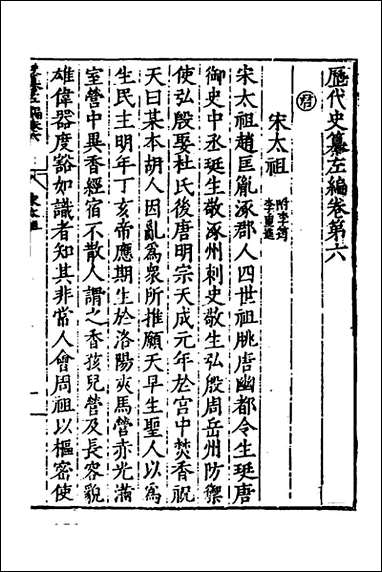 歷代史纂左編卷第六
君
宋太祖
附李筠
李重進
宋太祖趙匡胤涿郡人四世祖朓唐幽都令生珽唐
御史中丞珽生敬涿州刺史敬生弘殷周岳州防禦
使弘殷娶杜氏後唐明宗天成元年於宮中焚香祝
天曰某本胡人因亂為衆所推願天早生聖人以為
生民主明年丁亥帝應期生於洛陽夾馬營赤光滿
室營中異香經宿不散人謂之香孩兒營及長容貌
雄偉器度豁如識者知其非常人會周祖以樞密使